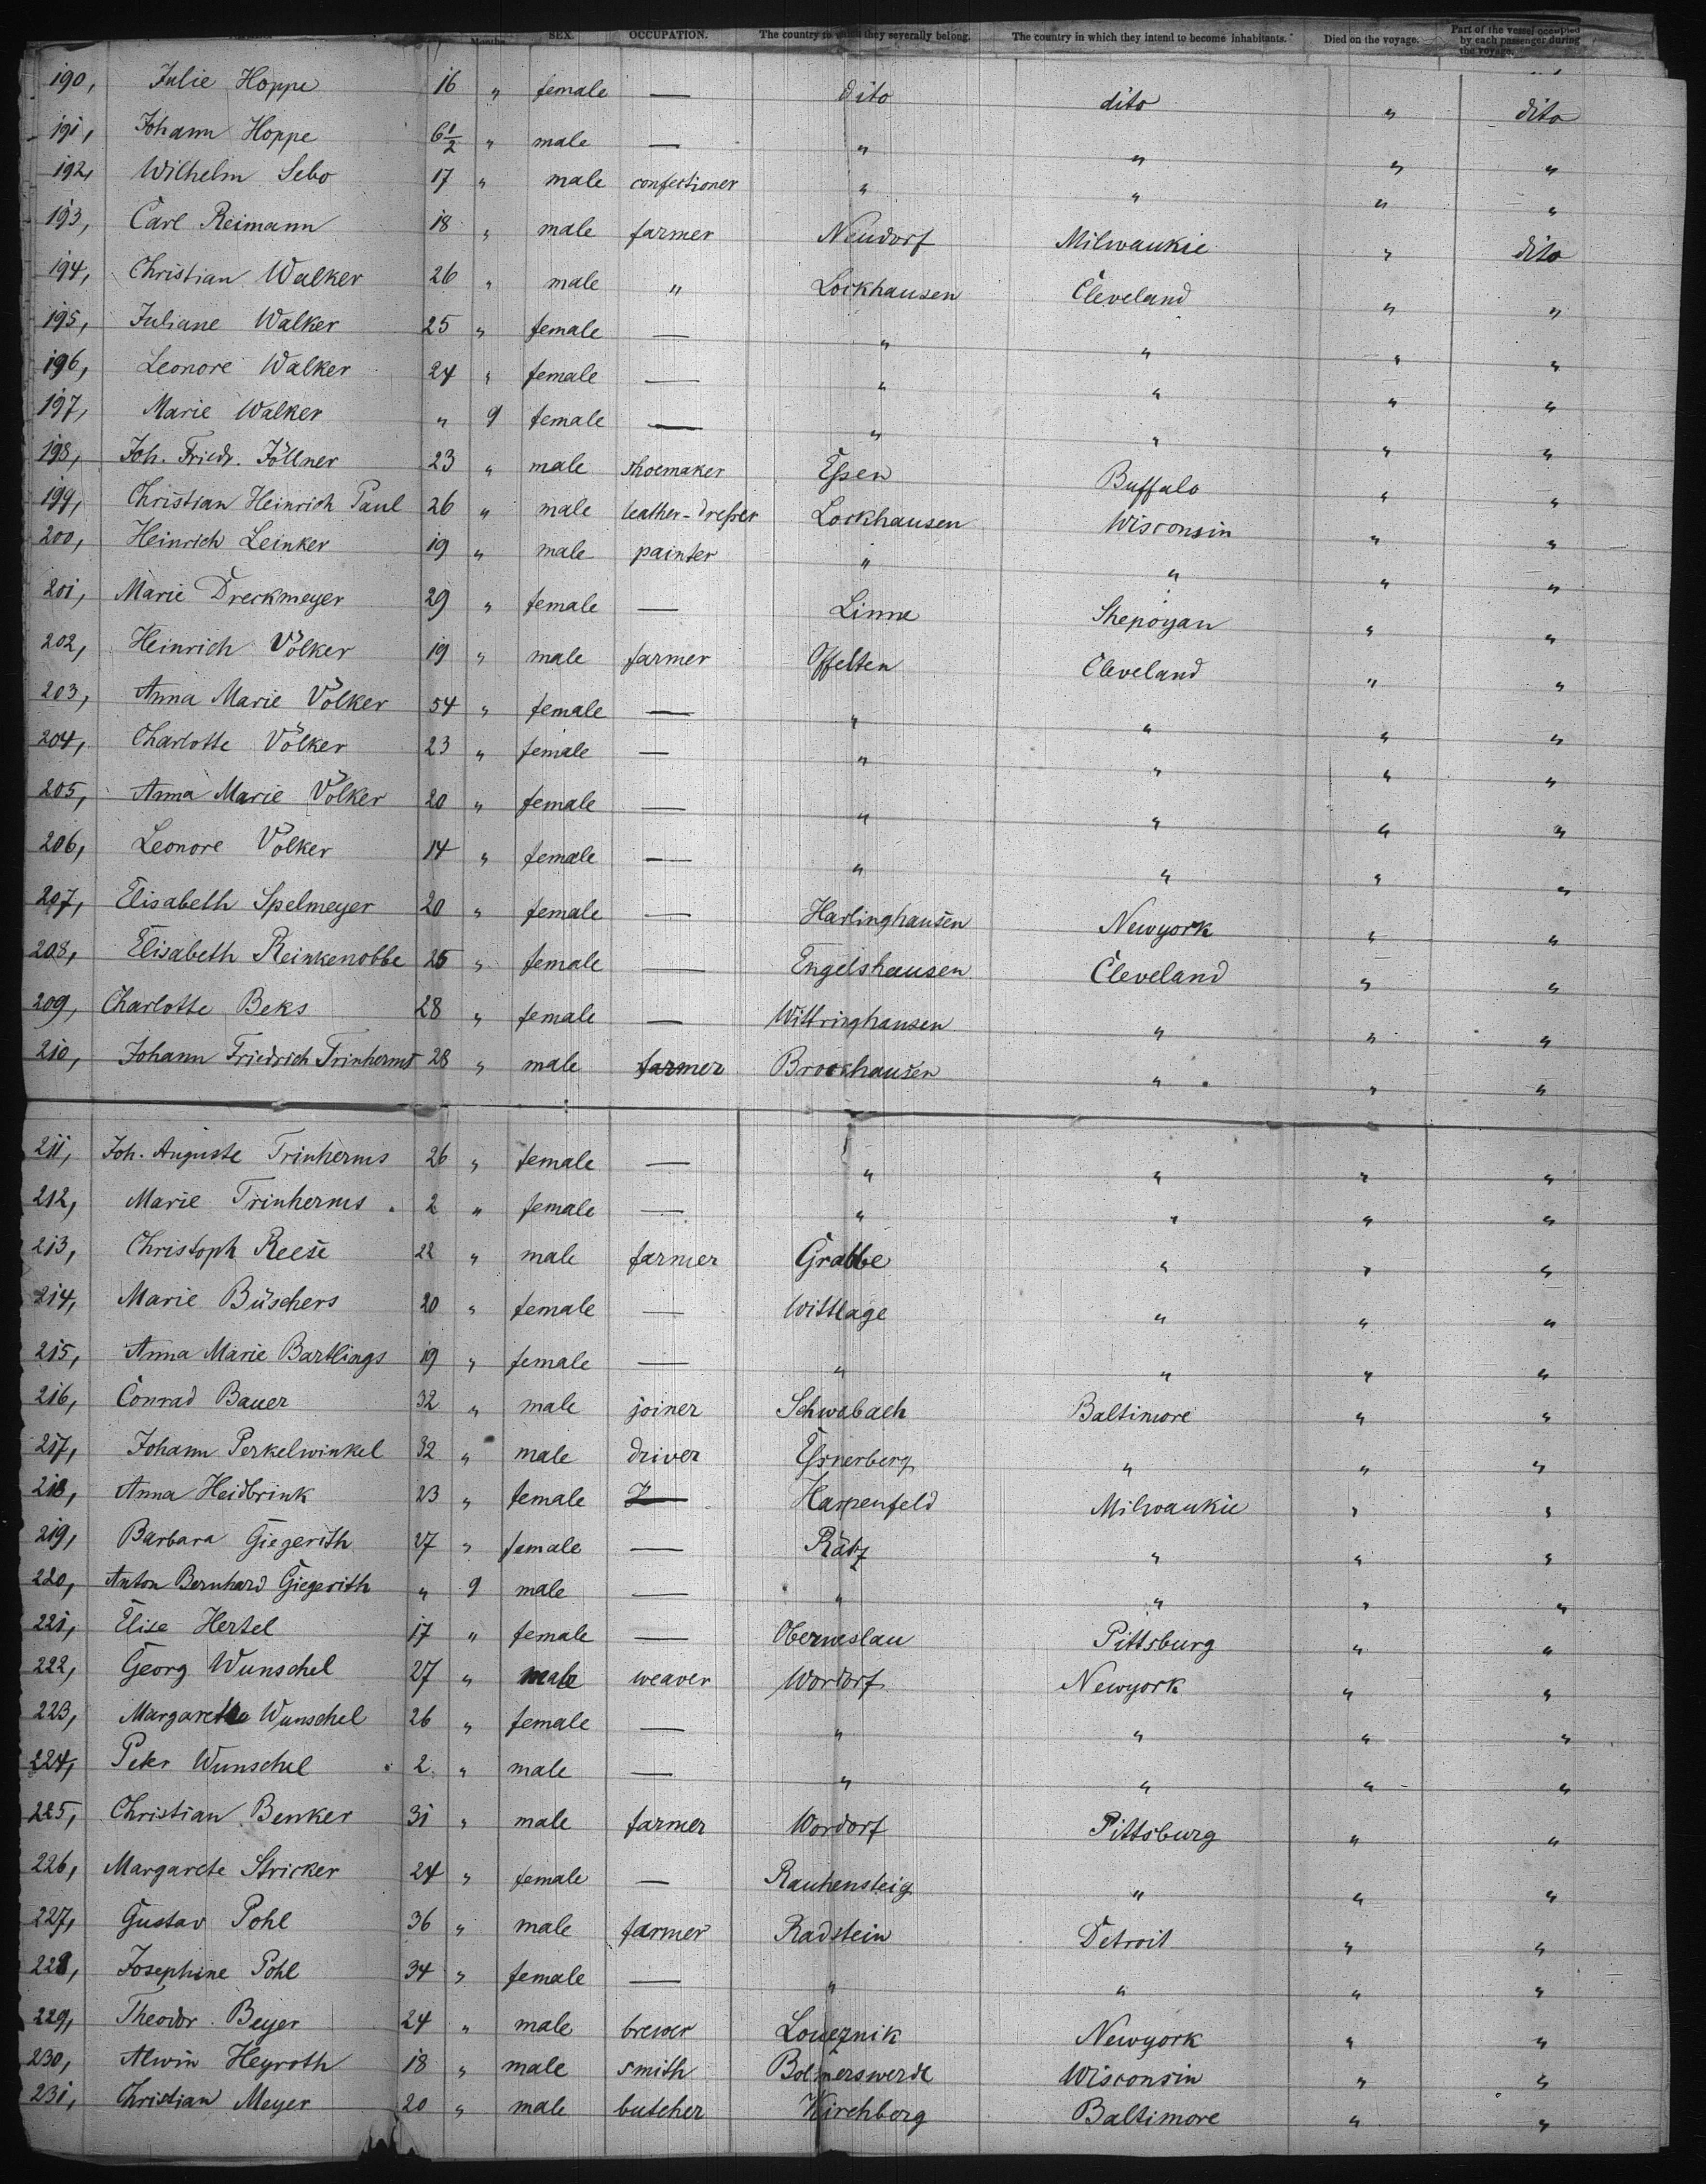 Months. SEX. OCCUPATION. The country to which they severally belong. The country in which they intend to become inhabitants. Died on the voyage. Part of the vessel occupied by each passenger during the voyage.
190, Julie Hoppe 16 " female — dito dito " dito
191, Johann Hoppe 6 1/2 " male — " " " "
192, Wilhelm Sebo 17 " male confectioner " " " "
193, Carl Reimann 18 " male farmer Neudorf Milwaukie " dito
194, Christian Walker 26 " male " Lockhausen Cleveland " "
195, Juliane Walker 25 " female — " " " "
196, Leonore Walker 24 " female — " " " "
197, Marie Walker " 9 female — " " " "
198, Joh. Friedr. Jöllner 23 " male shoemaker Eßen Buffalo " "
199, Christian Heinrich Paul 26 " male leather-dreßer Lockhausen Wisconsin " "
200, Heinrich Leinker 19 " male painter " " " "
201, Marie Dreckmeyer 29 " female — Linne Shepoyan " "
202, Heinrich Völker 19 " male farmer Offelten Cleveland " "
203, Anna Marie Völker 54 " female — " " " "
204, Charlotte Völker 23 " female — " " " "
205, Anna Marie Völker 20 " female — " " " "
206, Leonore Völker 14 " female — " " " "
207, Elisabeth Spelmeyer 20 " female — Harlinghausen Newyork " "
208, Elisabeth Reinkenobbe 25 " female — Engelshausen Cleveland " "
209, Charlotte Beks 28 " female — Wittringhausen " " "
210, Johann Friedrich Trinherms 28 " male farmer Brockhausen " " "
211, Joh. Auguste Trinherms 26 " female — " " " "
212, Marie Trinherms 2 " female — " " " "
213, Christoph Reese 22 " male farmer Grabbe " " "
214, Marie Büschers 20 " female — Wittlage " " "
215, Anna Marie Bartlings 19 " female — " " " "
216, Conrad Bauer 32 " male joiner Schwabach Baltimore " "
217, Johann Perkelwinkel 32 " male driver Eßnerberg " " "
218, Anna Heidbrink 23 " female — Harpenfeld Milwaukie " "
219, Barbara Giegerith 27 " female — Rätz " " "
220, Anton Bernhard Giegerith " 9 male — " " " "
221, Elise Hertel 17 " female — Oberweslau Pittsburg " "
222, Georg Wunschel 27 " male weaver Wordorf Newyork " "
223, Margaretha Wunschel 26 " female — " " " "
224, Peter Wunschel 2 " male — " " " "
225, Christian Benker 31 " male farmer Wordorf Pittsburg " "
226, Margarete Stricker 24 " female — Rauhensteig " " "
227, Gustav Pohl 36 " male farmer Radstein Detroit " "
228, Josephine Pohl 34 " female — " " " "
229, Theodor Beyer 24 " male brewer Loueznik Newyork " "
230, Alwin Heyroth 18 " male smith Bolmerswerde Wisconsin " "
231, Christian Meyer 20 " male butcher Kirchberg Baltimore " "